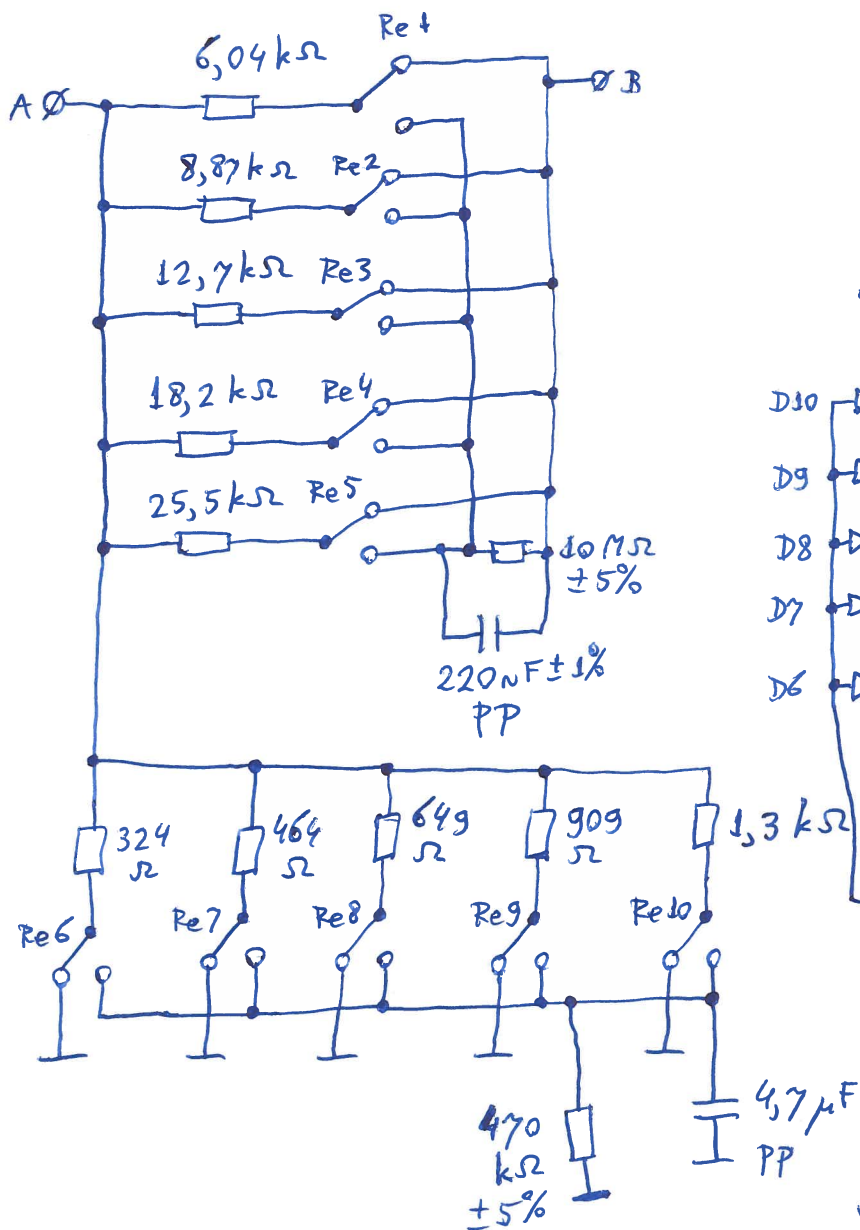 Re1
6,04kΩ
A
B
8,87kΩ
Re2
12,7kΩ
Re3
18,2kΩ
Re4
25,5kΩ
Re5
10MΩ
±5%
220nF±1%
PP
D10
D9
D8
D7
D6
324
Ω
464
Ω
649
Ω
909
Ω
1,3kΩ
Re6
Re7
Re8
Re9
Re10
470
kΩ
±5%
4,7µF
PP